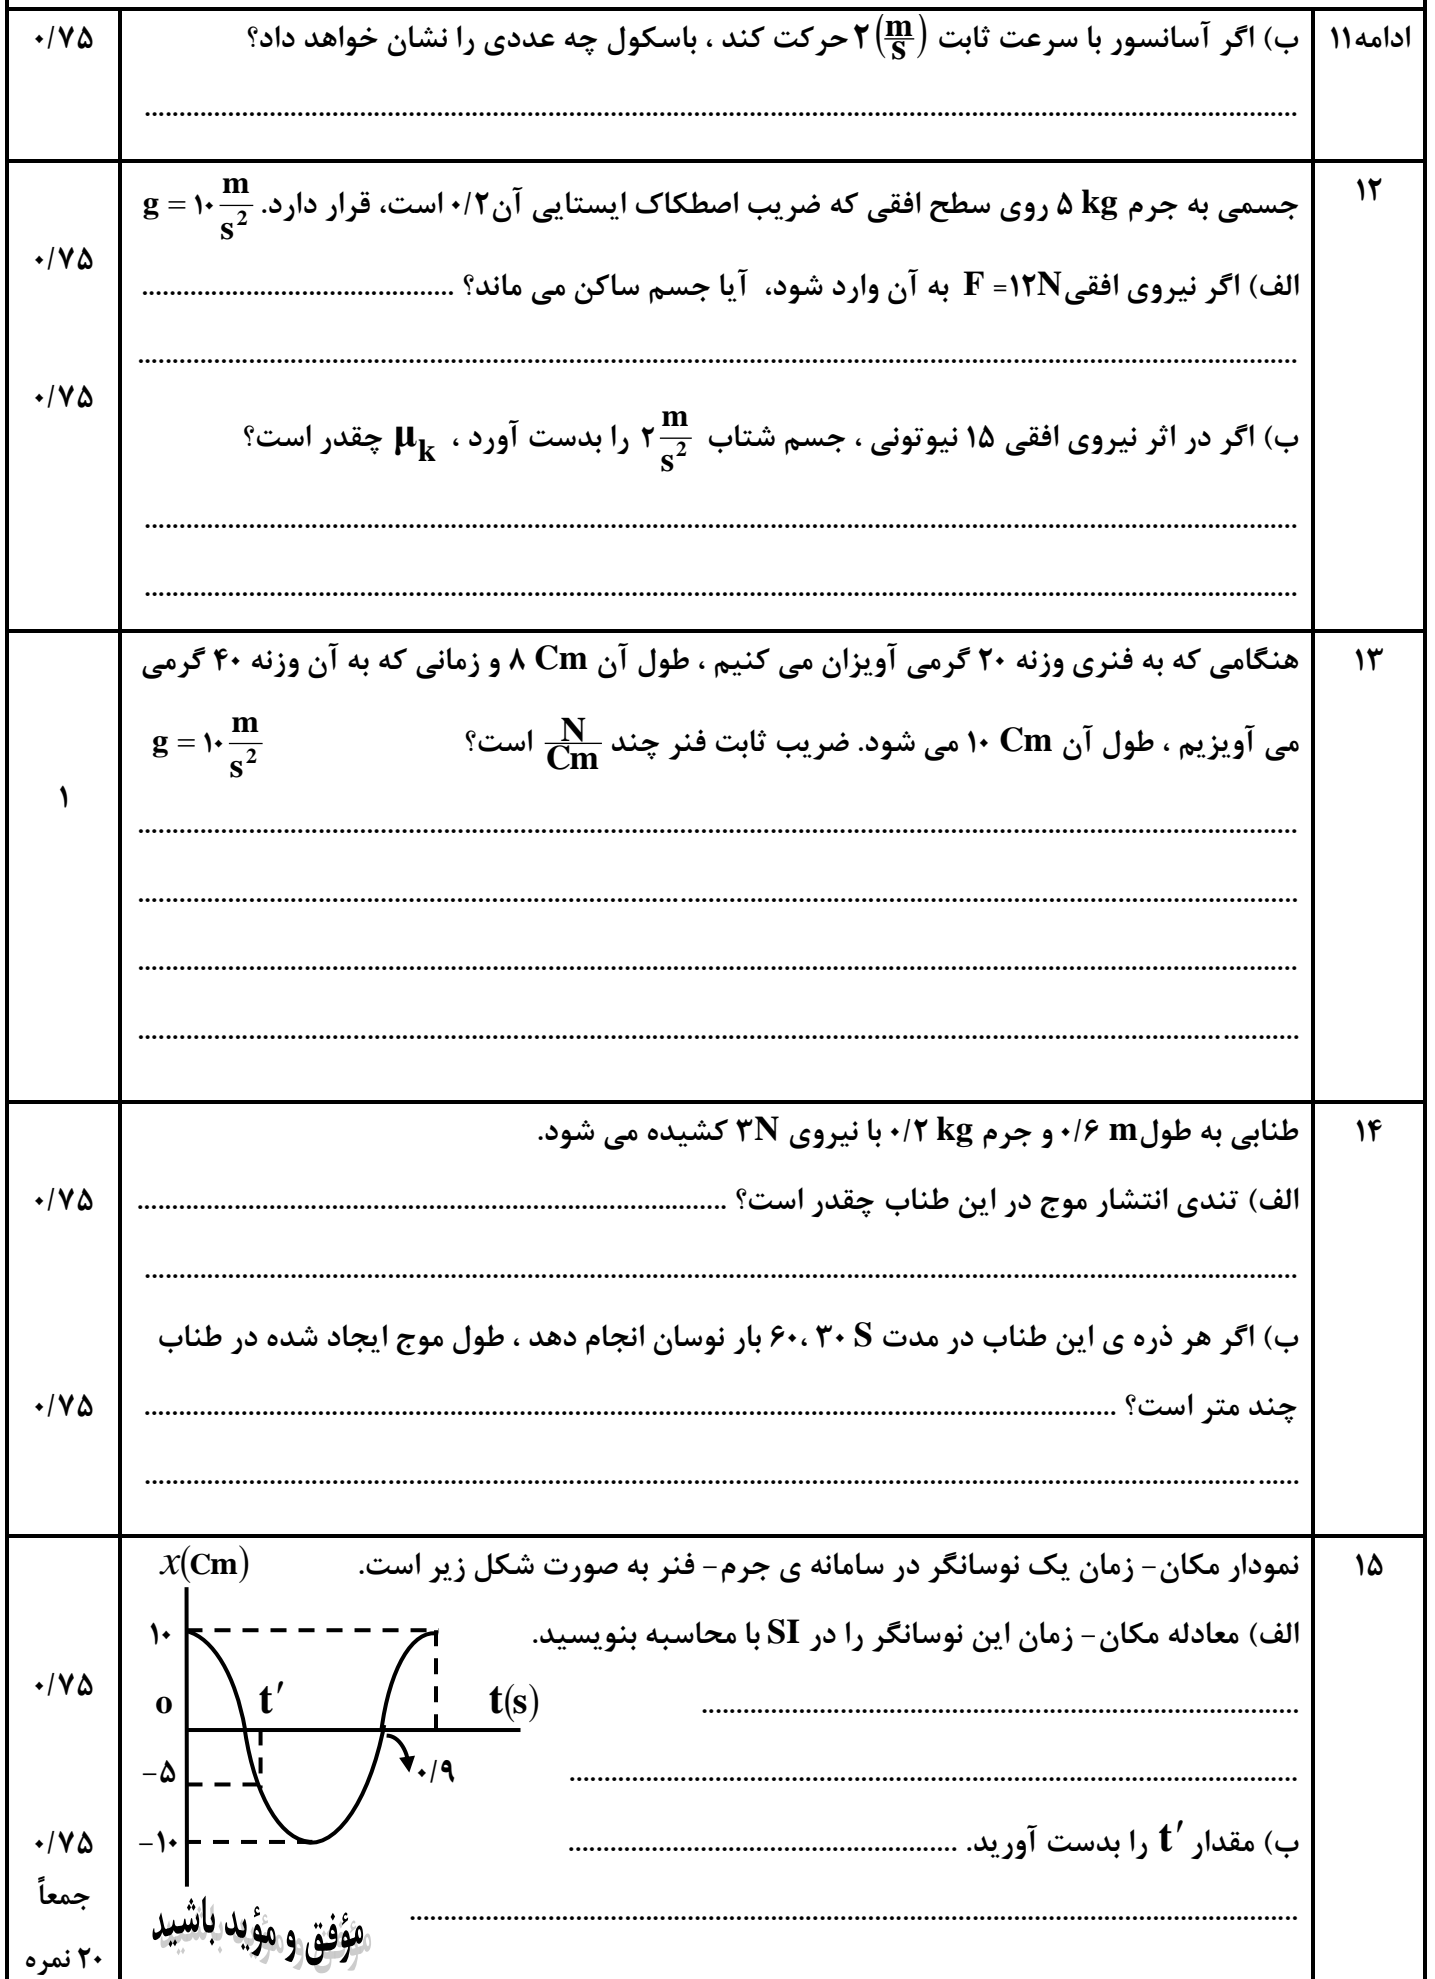 ادامه۱۱
ب) اگر آسانسور با سرعت ثابت ۲(m/s) حرکت کند ، باسکول چه عددی را نشان خواهد داد؟
۰/۷۵
................................................................
۱۲
جسمی به جرم ۵ kg روی سطح افقی که ضریب اصطکاک ایستایی آن۰/۲ است، قرار دارد. g = ۱۰ m/s²
الف) اگر نیروی افقی F =۱۲N به آن وارد شود، آیا جسم ساکن می ماند؟ ................................
۰/۷۵
................................................................
ب) اگر در اثر نیروی افقی ۱۵ نیوتونی ، جسم شتاب ۲ m/s² را بدست آورد ، μk چقدر است؟
۰/۷۵
................................................................
................................................................
۱۳
هنگامی که به فنری وزنه ۲۰ گرمی آویزان می کنیم ، طول آن ۸ Cm و زمانی که به آن وزنه ۴۰ گرمی
می آویزیم ، طول آن ۱۰ Cm می شود. ضریب ثابت فنر چند N/Cm است؟ g = ۱۰ m/s²
۱
................................................................
................................................................
................................................................
................................................................
۱۴
طنابی به طول۰/۶ m و جرم ۰/۲ kg با نیروی ۳N کشیده می شود.
الف) تندی انتشار موج در این طناب چقدر است؟ ................................
۰/۷۵
................................................................
ب) اگر هر ذره ی این طناب در مدت ۳۰ S ،۶۰ بار نوسان انجام دهد ، طول موج ایجاد شده در طناب
چند متر است؟ ................................
۰/۷۵
................................................................
۱۵
نمودار مکان- زمان یک نوسانگر در سامانه ی جرم- فنر به صورت شکل زیر است.
الف) معادله مکان- زمان این نوسانگر را در SI با محاسبه بنویسید.
۰/۷۵
................................................................
................................................................
ب) مقدار t′ را بدست آورید. ................................
۰/۷۵
................................................................
x(Cm)
۱۰
o
t′
t(s)
-۵
۰/۹
-۱۰
مؤفق و مؤید باشید
جمعاً
۲۰ نمره